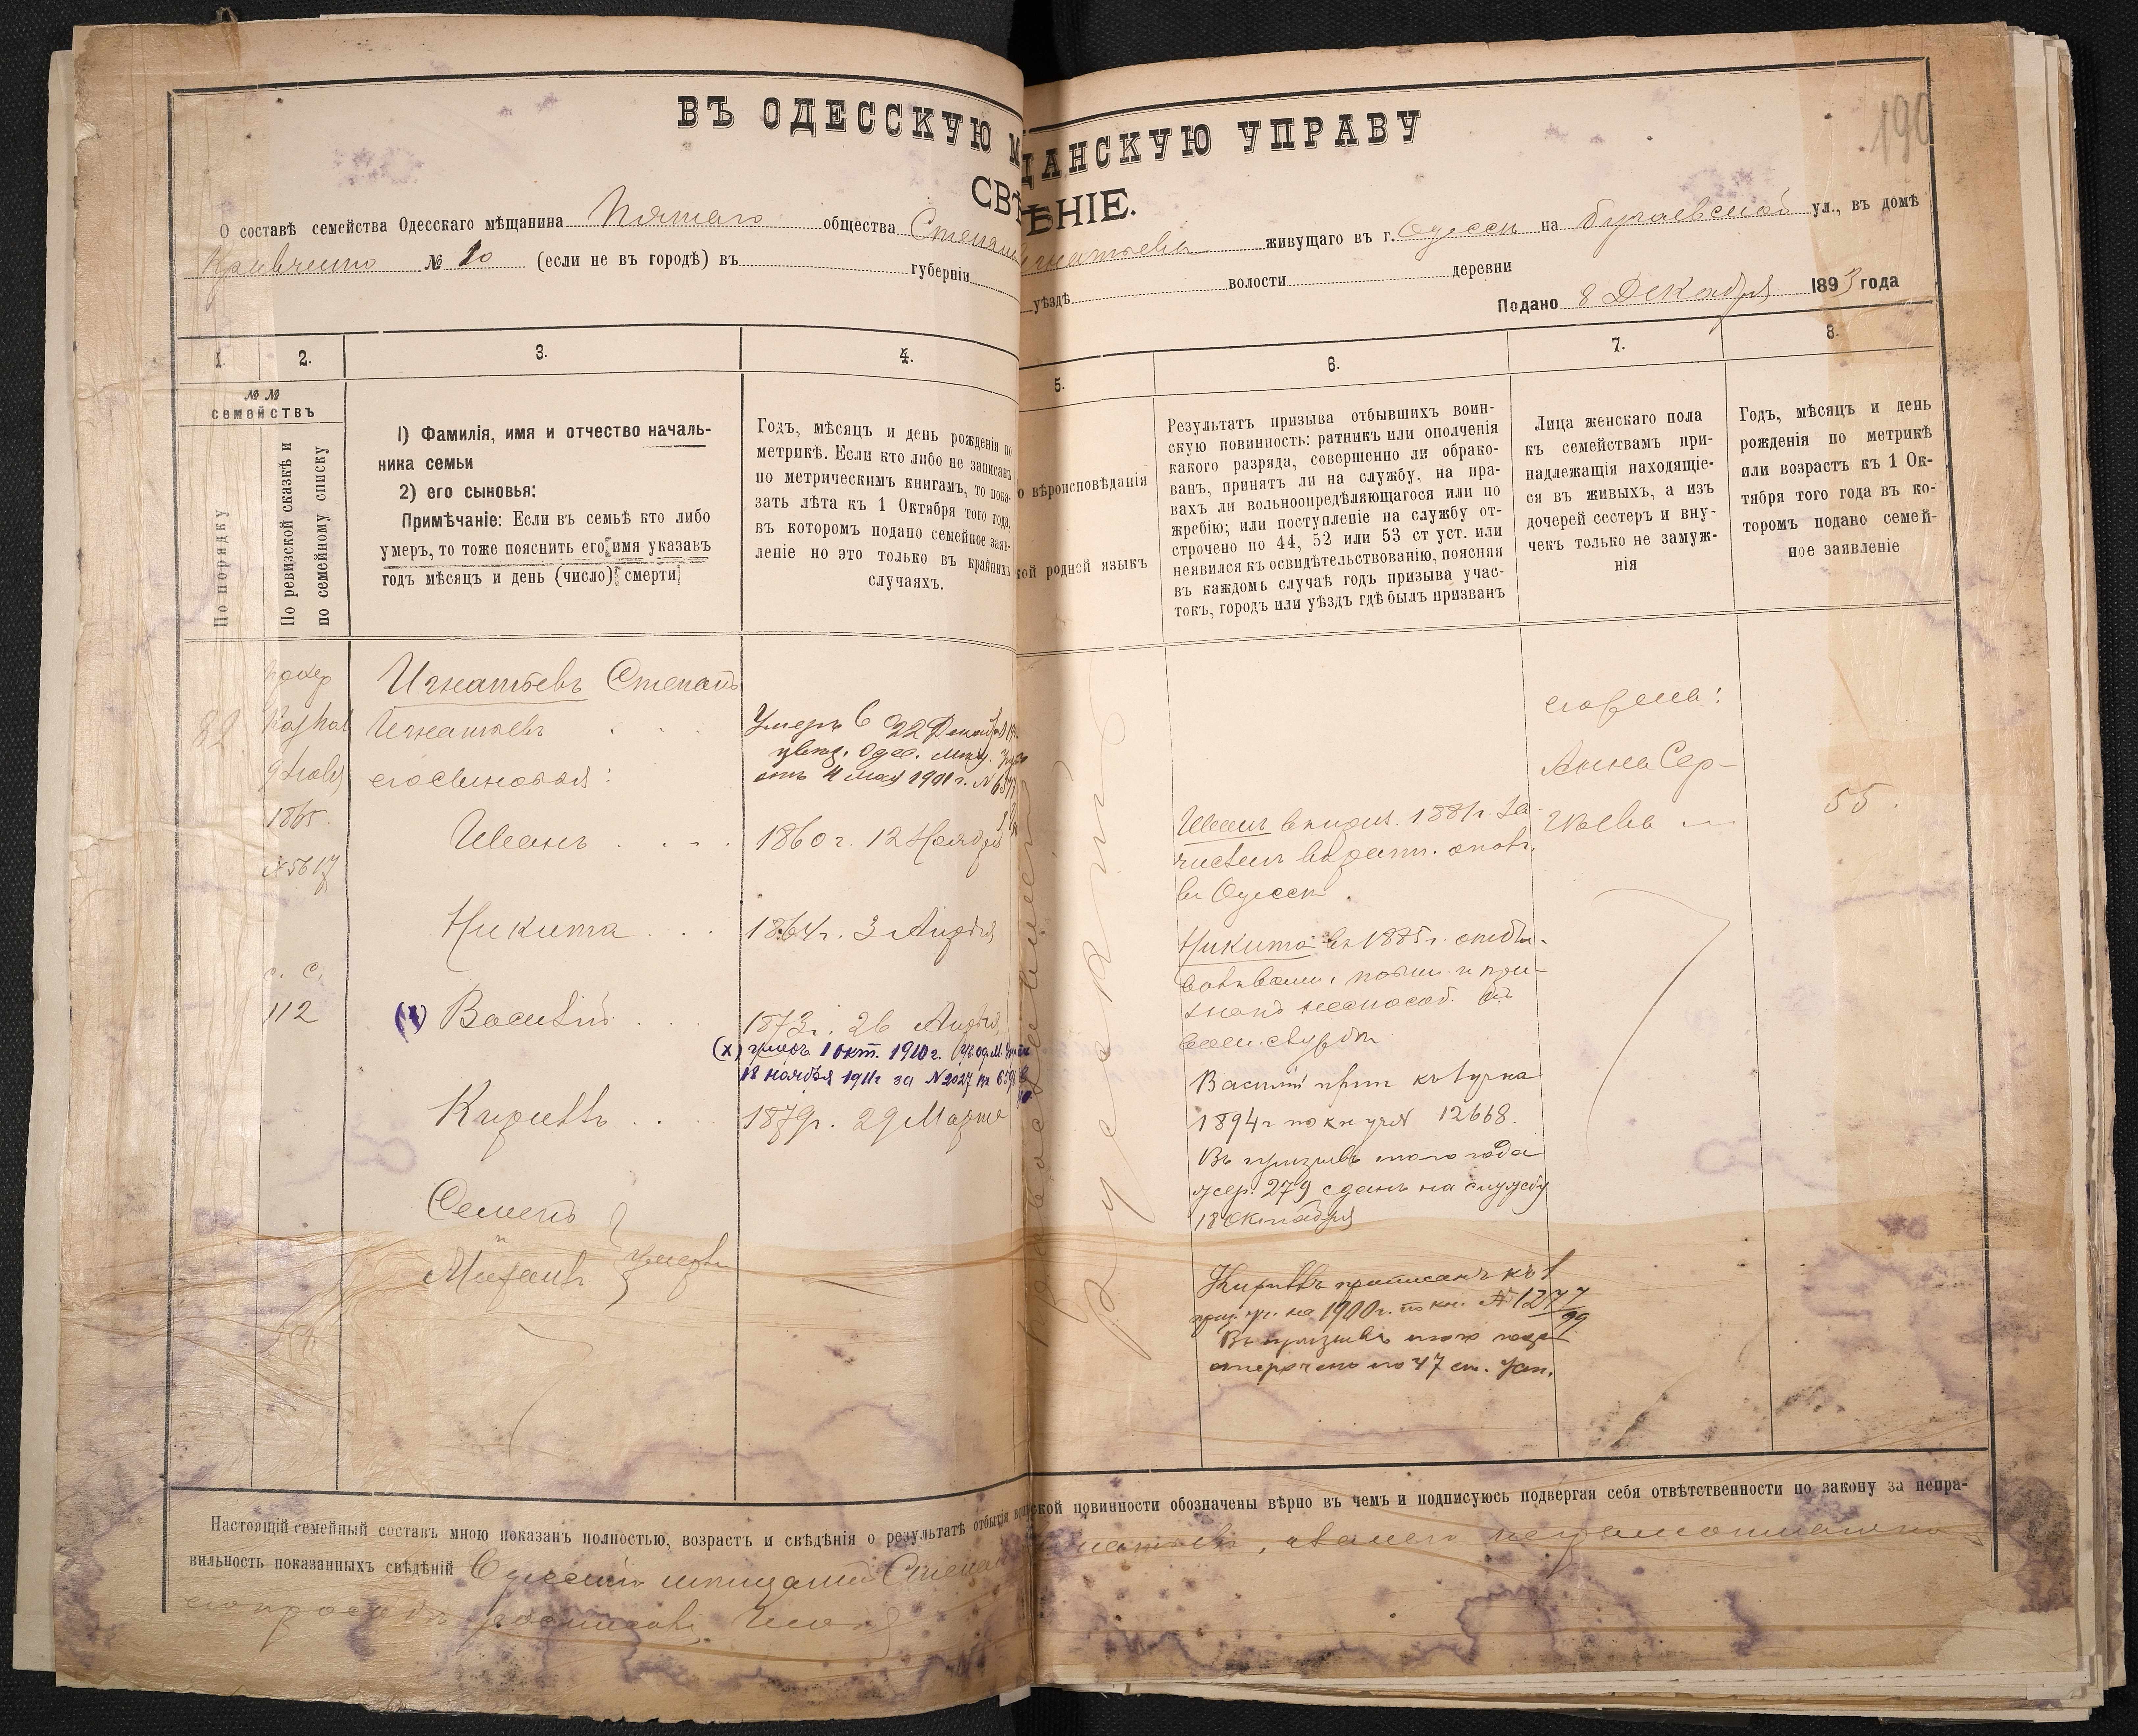 190
ВЪ ОДЕССКУЮ М ЩАНСКУЮ УПРАВУ
СВѢ ѢНІЕ.
О составѣ семейства Одесскаго мѣщанина Пятаго общества Степана Игнатьева живущаго въ г. Одессѣ на Бугаевской ул., въ домѣ
Кравченко № 10 (если не въ городѣ) въ губерніи уѣздѣ волости деревни
Подано 8 Декабря 1893 года
1. 2. 3. 4. 5. 6. 7. 8.
№ №
семействъ
По порядку
По ревизской сказкѣ и
по семейному списку
1) Фамилія, имя и отчество началь-
ника семьи
2) его сыновья:
Примѣчаніе: Если въ семьѣ кто либо
умеръ, то тоже пояснить его имя указавъ
годъ мѣсяцъ и день (число) смерти
Годъ, мѣсяцъ и день рожденія по
метрикѣ. Если кто либо не записанъ
по метрическимъ книгамъ, то пока-
зать лѣта къ 1 Октября того года,
въ которомъ подано семейное заяв-
леніе но это только въ крайнихъ
случаяхъ.
о вѣроисповѣданія
кой родной языкъ
Результатъ призыва отбывшихъ воин-
скую повинность: ратникъ или ополченія
какого разряда, совершенно ли обрако-
ванъ, принятъ ли на службу, на пра-
вахъ ли вольноопредѣляющагося или по
жребію; или поступленіе на службу от-
строчено по 44, 52 или 53 ст уст. или
неявился къ освидѣтельствованію, поясняя
въ каждомъ случаѣ годъ призыва учас-
токъ, городъ или уѣздъ гдѣ былъ призванъ
Лица женскаго пола
къ семействамъ при-
надлежащія находящіе-
ся въ живыхъ, а изъ
дочерей сестеръ и вну-
чекъ только не замуж-
нія
Годъ, мѣсяцъ и день
рожденія по метрикѣ
или возрастъ къ 1 Ок-
тября того года въ ко-
торомъ подано семей-
ное заявленіе
82
9 Іюля
1865.
№ 5617
с. с.
112
Игнатьевъ Степанъ
Игнатьевъ
его сыновья:
Иванъ
Никита
(х) Василій
Кириллъ
Семенъ
и
Михаилъ
умерли
Умеръ 22 Декабря
увед. Одес. Мѣщ. Упр
отъ 4 мая 1901 г. №
1860 г. 12 Ноября
1864 г. 3 Апрѣля
1873 г. 26 Апрѣля
(х) умеръ 1 окт. 1910 г. (Ув од. М. Упр
18 ноября 1911 г за № 2027
1879 г. 29 Марта
Православнаго
Русскій
Иванъ въ 1881 г. за-
численъ въ ратн. опол.
въ Одессѣ.
Никита въ 1885 г. отбы-
валъ воин. повин. и при-
знанъ неспособ. къ
воен. службѣ
Василій прип къ 1 участка
1894 г по кн уч № 12668.
Въ призывъ того года
жер. 279 сданъ на службу
18 Октября
Кириллъ приписанъ къ 1
приз. уч. на 1900 г. по кн. № 1277/99
Въ призывъ того года
отсрочено по 47 ст. Уст.
его жена:
Анна Сер-
гѣева
55.
Настоящій семейный составъ мною показанъ полностью, возрастъ и свѣдѣнія о результатѣ отбытія воинской повинности обозначены вѣрно въ чемъ и подписуюсь подвергая себя отвѣтственности по закону за непра-
вильность показанныхъ свѣдѣній Одесскій мѣщанинъ Степанъ Игнатьевъ, а за него неграмотнаго
по просьбѣ росписался